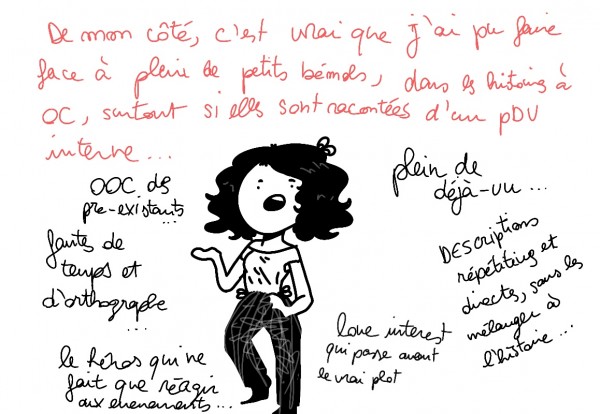 De mon côté, c'est vrai que j'ai pu faire
face à plein de petits bémols, dans les histoires à
OC, surtout si elles sont racontées d'un PDV
interne...
OOC des
pre-existants...
fautes de
temps et
d'orthographe
...
le héros qui ne
fait que réagir
aux evenements...
love interest
qui passe avant
le vrai plot
plein de
déjà-vu...
DESCRIPTIONS
répétitives et
directes, sans les
mélanger à
l'histoire...